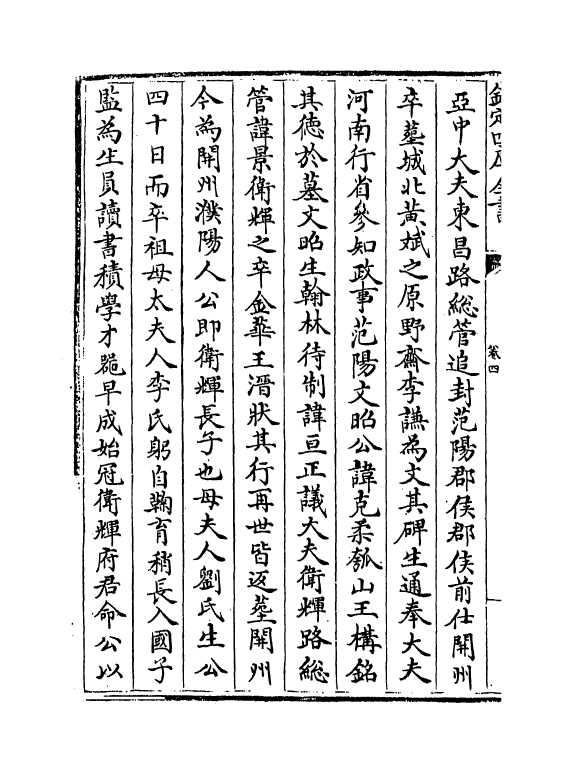 欽定四庫全書
卷四
亞中大夫東昌路総管追封范陽郡侯郡侯前仕開州
卒塟城北黄斌之原野齋李謙為文其碑生通奉大夫
河南行省參知政事范陽文昭公諱克柔瓠山王構銘
其徳於墓文昭生翰林待制諱亘正議大夫衛輝路総
管諱景衛輝之卒金華王溍狀其行再世皆返塟開州
今為開州濮陽人公即衛輝長子也母夫人劉氏生公
四十日而卒祖母太夫人李氏躬自鞠育稍長入國子
監為生員讀書積學才䟫早成始冠衛輝府君命公以